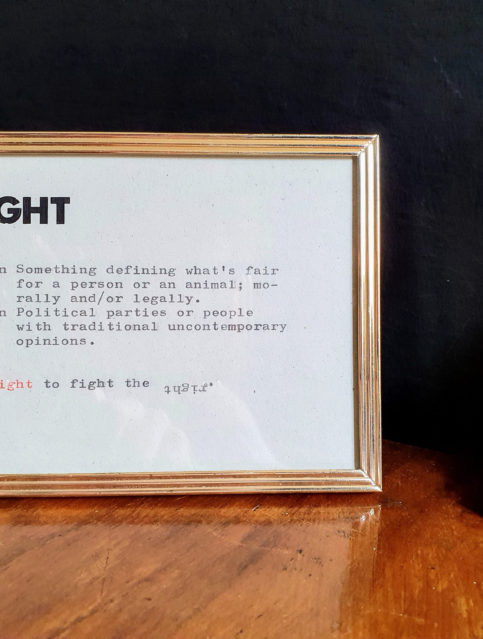 GHT
n Something defining what's fair
for a person or an animal; mo-
rally and/or legally.
n Political parties or people
with traditional uncontemporary
opinions.
ight to fight the right.